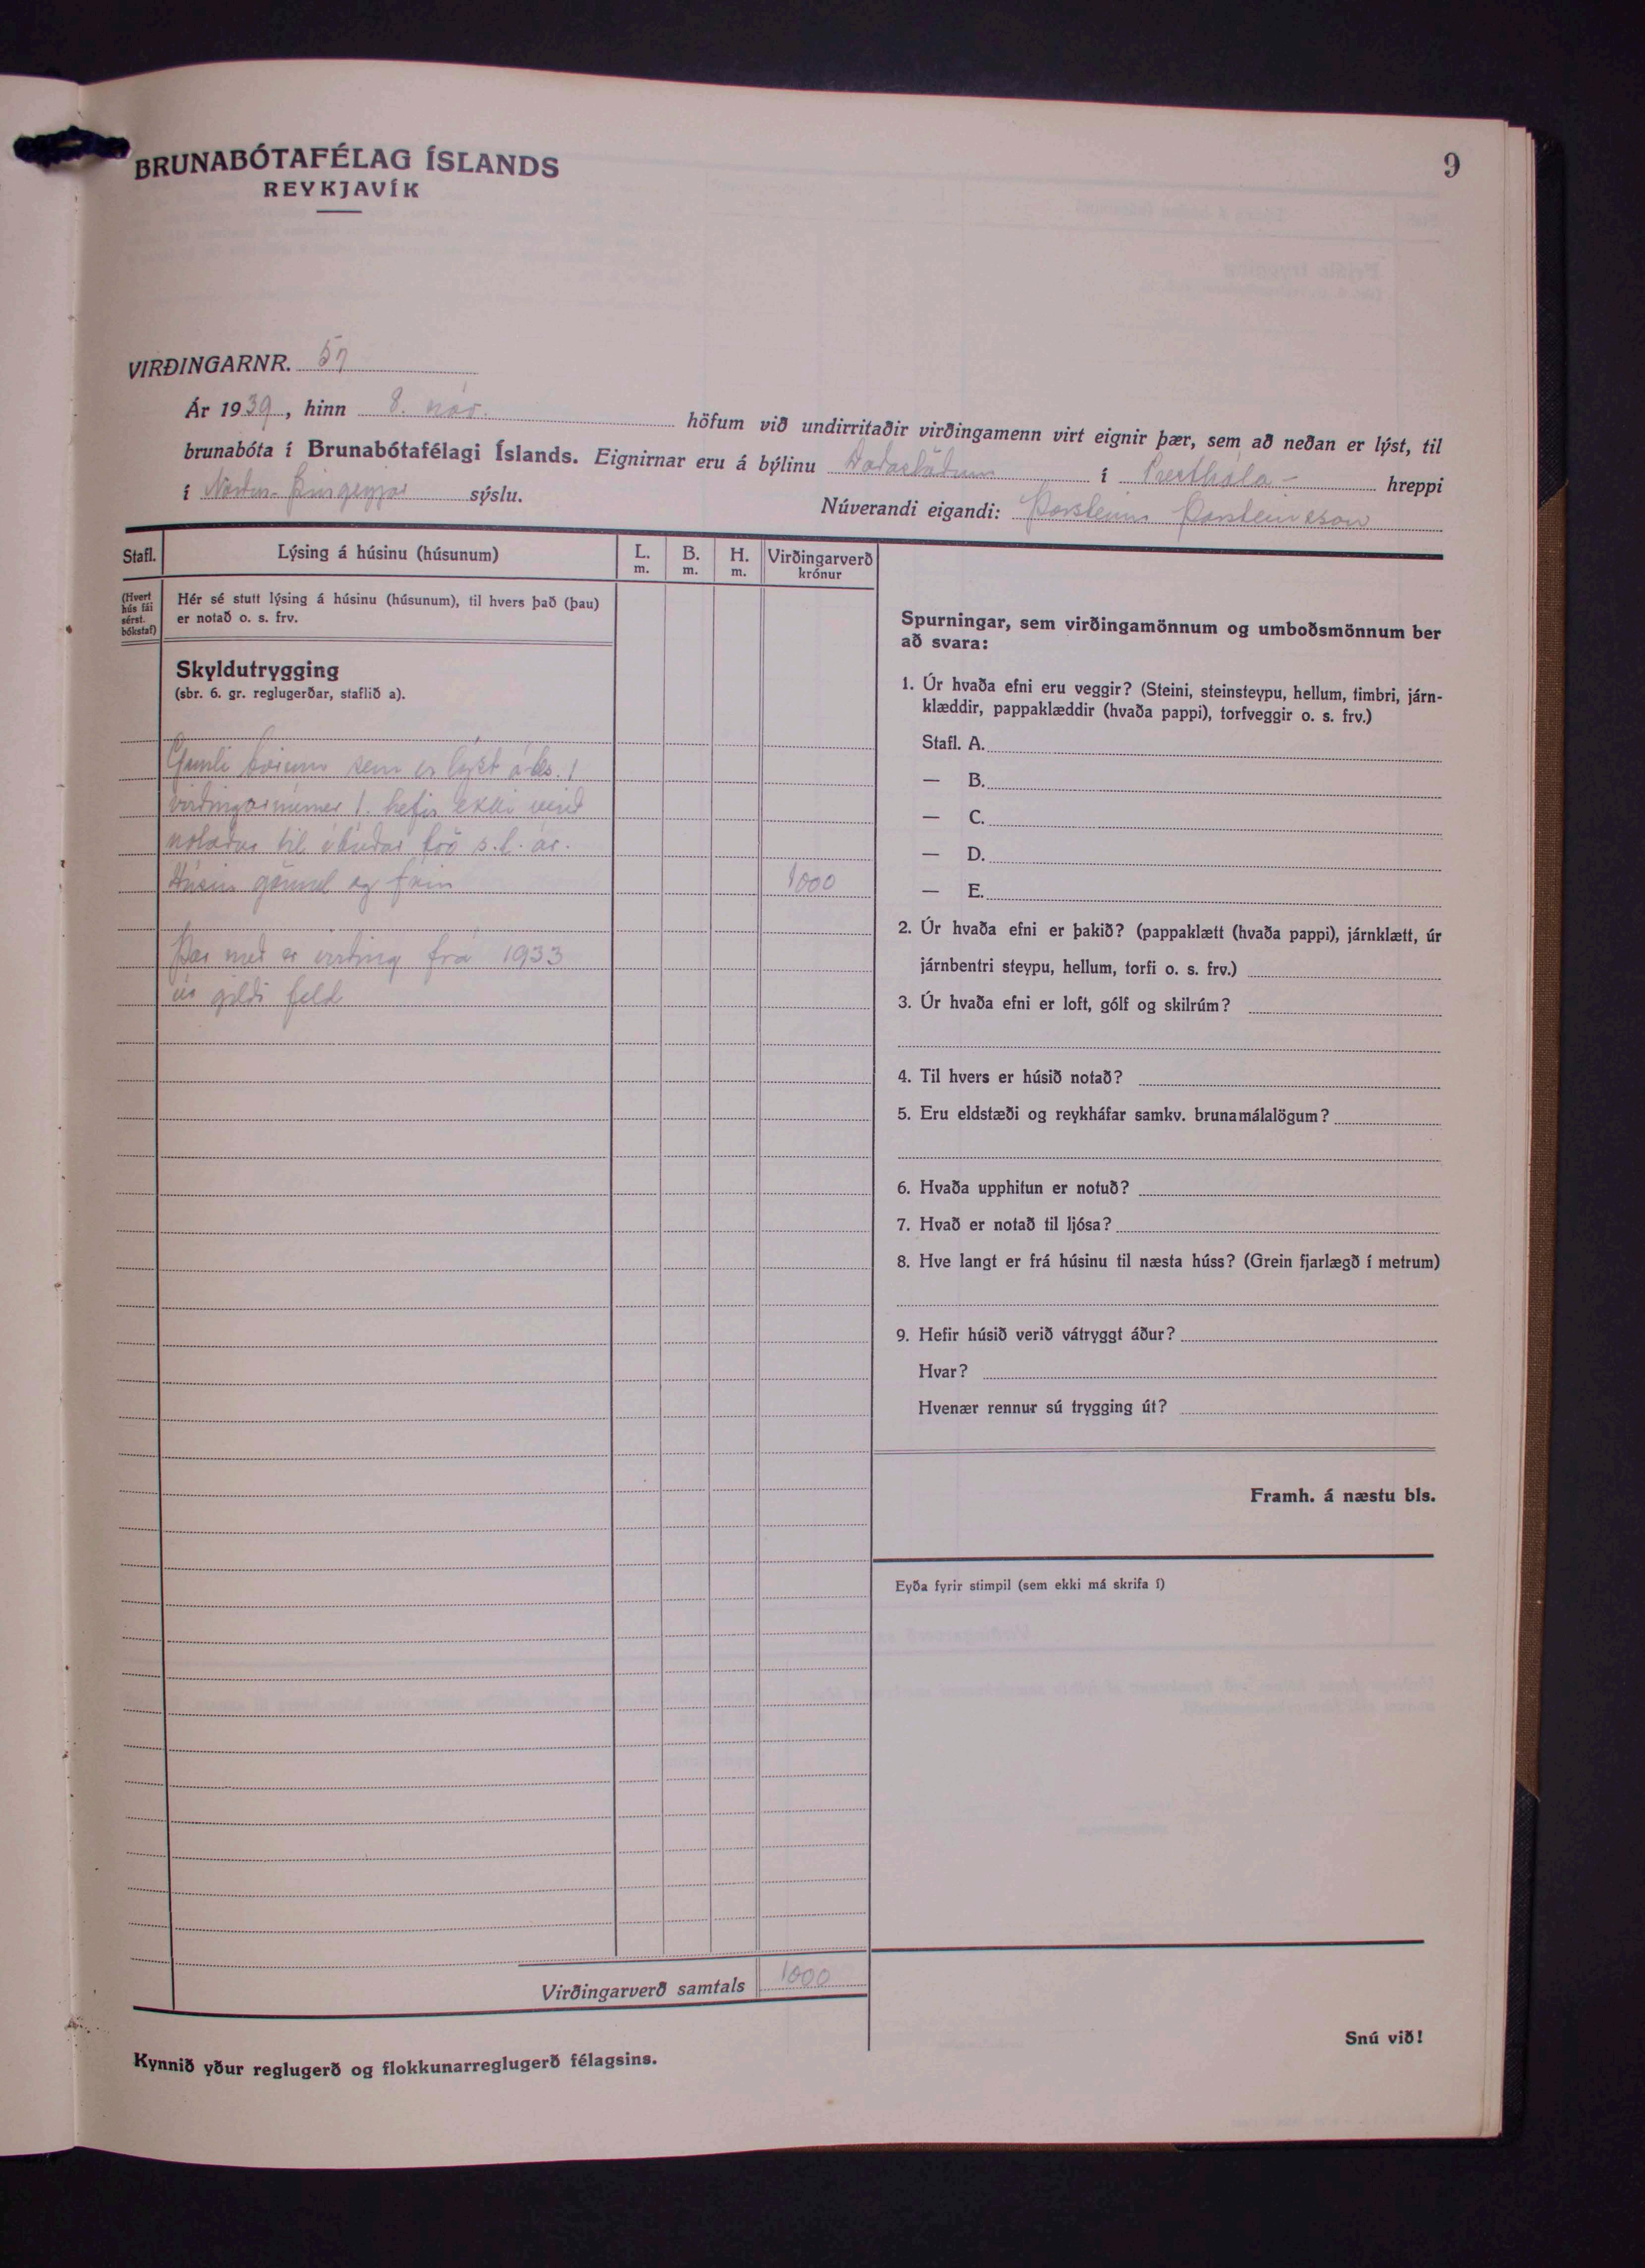 9
BRUNABÓTAFÉLAG ÍSLANDS
REYKJAVÍK
VIRÐINGARNR. 57
Ár 1939, hinn 8. nóv. höfum við undirritaðir virðingamenn virt eignir þær, sem að neðan er lýst, til
brunabóta í Brunabótafélagi Íslands. Eignirnar eru á býlinu Daðastöðum í Presthóla- hreppi
í Norður-Þingeyjar sýslu.
Núverandi eigandi: Þorsteinn Þorsteinsson
Stafl.
Lýsing á húsinu (húsunum)
L. m.
B. m.
H. m.
Virðingarverð krónur
(Hvert hús fái sérst. bókstaf)
Hér sé stutt lýsing á húsinu (húsunum), til hvers það (þau)
er notað o. s. frv.
Skyldutrygging
(sbr. 6. gr. reglugerðar, staflið a).
Gamli bærinn sem er lýst á bls. 1
virðingarnúmer 1. hefir ekki verið
notaður til íbúðar tvö s.l. ár.
Húsin gömul og fúin 1000
Þar með er virðing frá 1933
úr gildi feld
Virðingarverð samtals 1000
Kynnið yður reglugerð og flokkunarreglugerð félagsins.
Spurningar, sem virðingamönnum og umboðsmönnum ber
að svara:
1. Úr hvaða efni eru veggir? (Steini, steinsteypu, hellum, timbri, járn-
klæddir, pappaklæddir (hvaða pappi), torfveggir o. s. frv.)
Stafl. A.
— B.
— C.
— D.
— E.
2. Úr hvaða efni er þakið? (pappaklætt (hvaða pappi), járnklætt, úr
járnbentri steypu, hellum, torfi o. s. frv.)
3. Úr hvaða efni er loft, gólf og skilrúm?
4. Til hvers er húsið notað?
5. Eru eldstæði og reykháfar samkv. brunamálalögum?
6. Hvaða upphitun er notuð?
7. Hvað er notað til ljósa?
8. Hve langt er frá húsinu til næsta húss? (Grein fjarlægð í metrum)
9. Hefir húsið verið vátryggt áður?
Hvar?
Hvenær rennur sú trygging út?
Framh. á næstu bls.
Eyða fyrir stimpil (sem ekki má skrifa í)
Snú við!